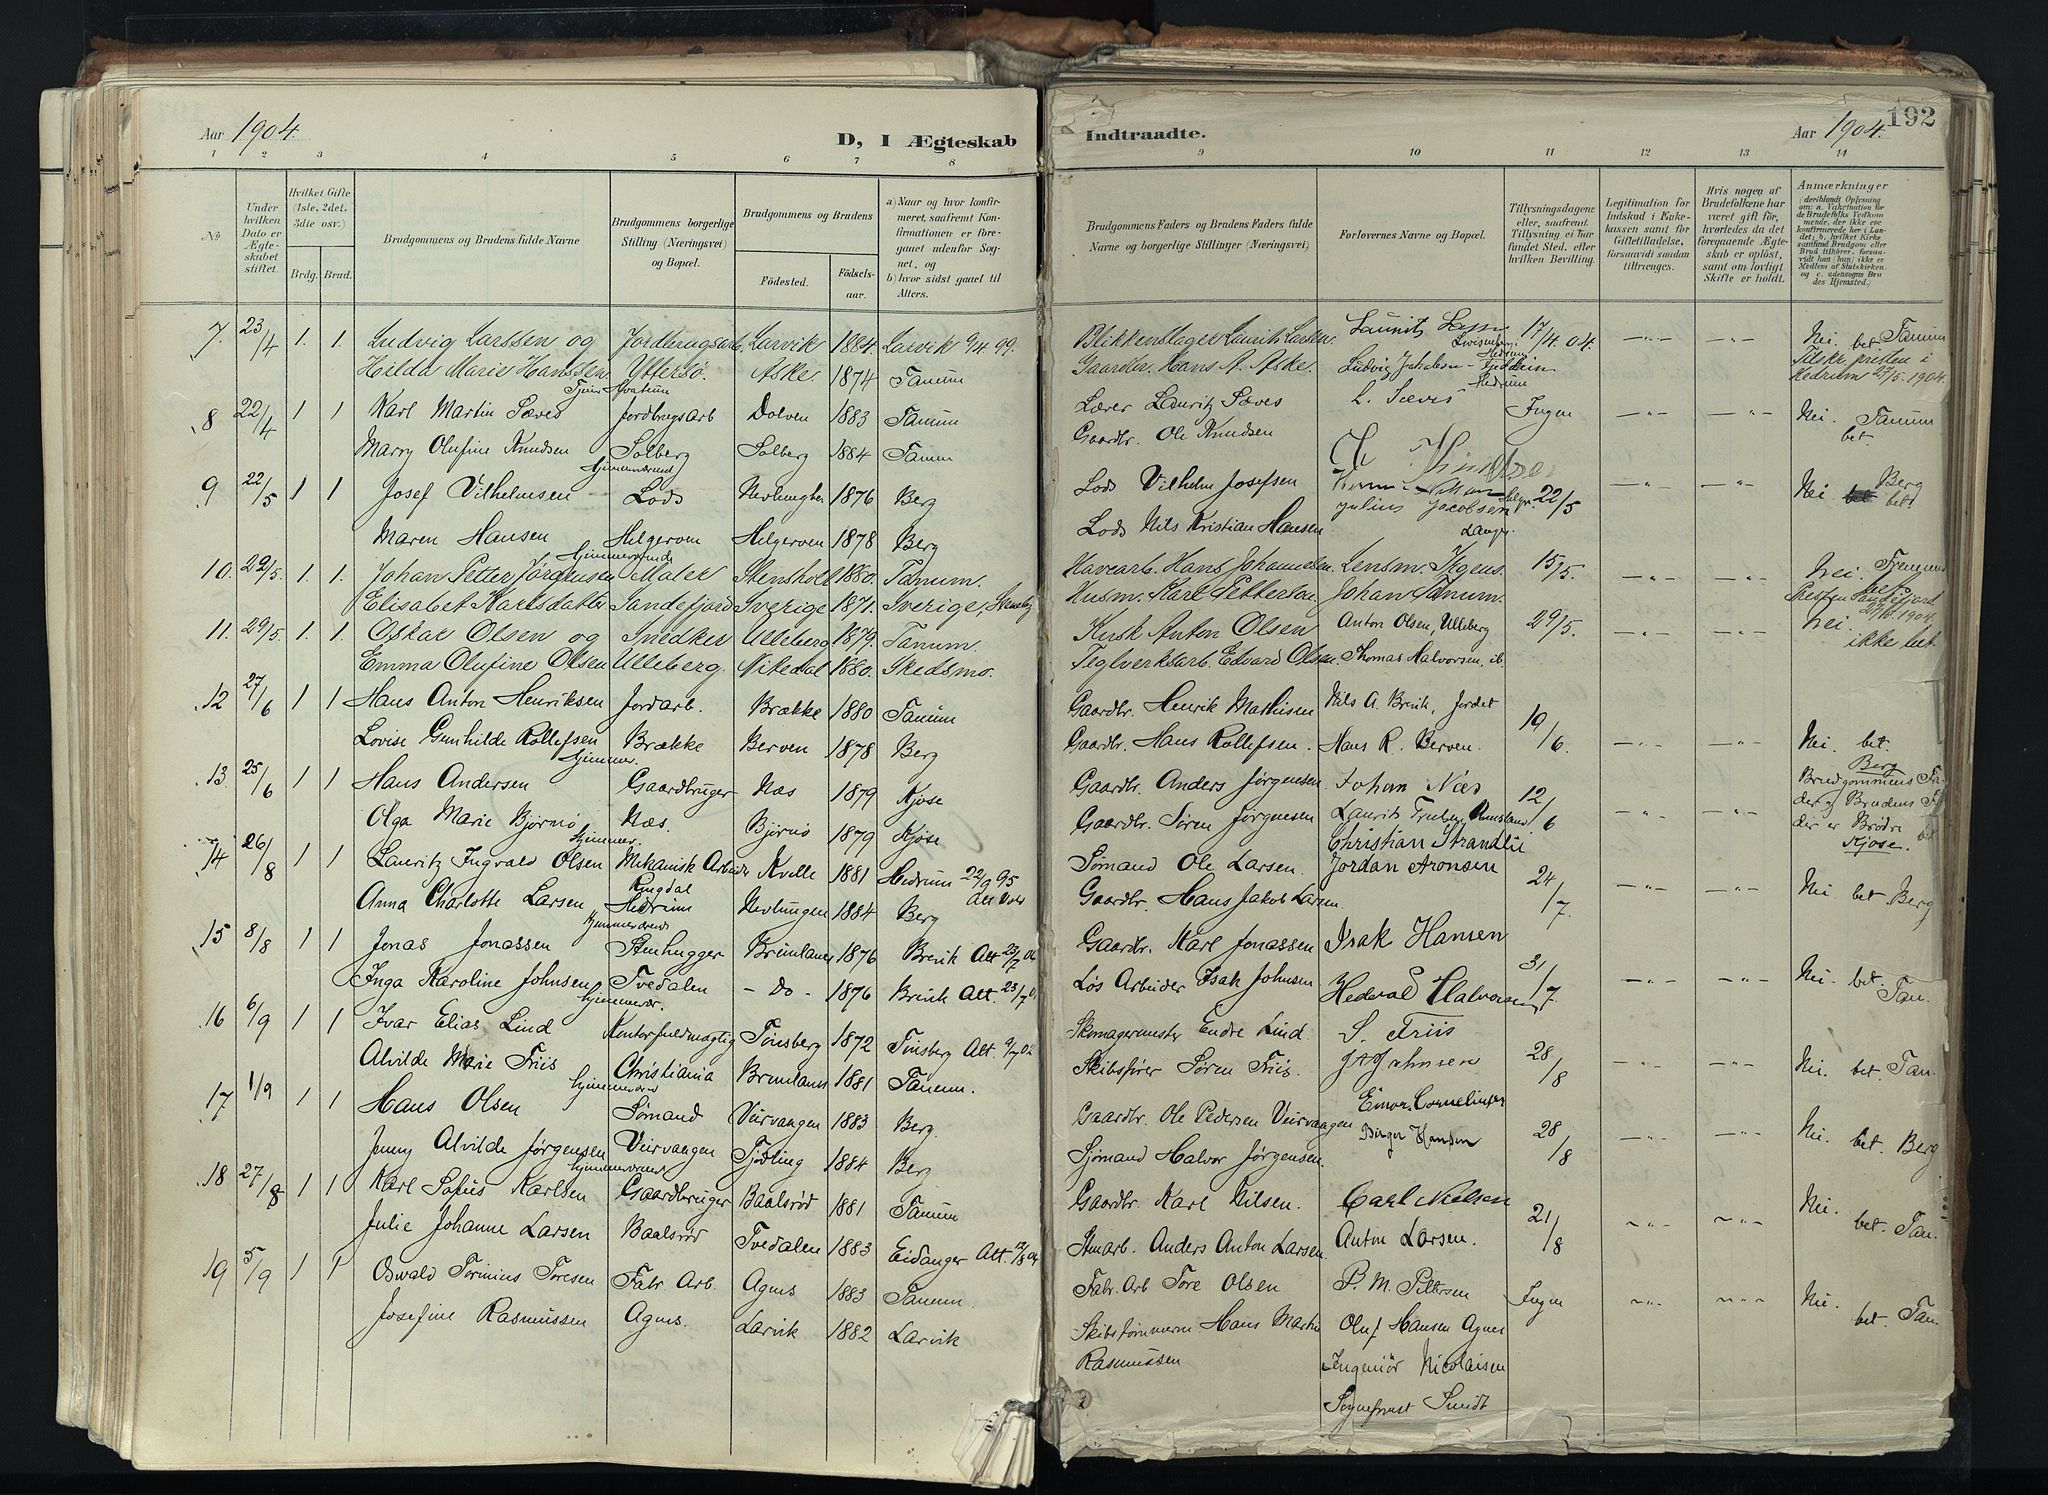 Aar 1904. D, I Ægteskab Indtraadte. Aar 1904. 192
1 2 3 4 5 6 7 8 9 10 11 12 13 14
No
Under hvilken Dato er Ægteskabet stiftet.
Hvilket Gifte (1ste, 2det, 3die osv.)
Brdg. Brud.
Brudgommens og Brudens fulde Navne
Brudgommens borgerlige Stilling (Næringsvei) og Bopæl.
Brudgommens og Brudens
Fødested.
Fødselsaar.
a) Naar og hvor konfirmeret, saafremt Konfirmationen er foregaaet udenfor Sognet, og
b) hvor sidst gaaet til Alters.
Brudgommens Faders og Brudens Faders fulde Navne og borgerlige Stillinger (Næringsvei)
Forlovernes Navne og Bopæl.
Tillysningsdagene eller, saafremt Tillysning ei har fundet Sted, efter hvilken Bevilling.
Legitimation for Indskud i Enkekassen samt for Giftetilladelse, forsaavidt saadan tiltrænges.
Hvis nogen af Brudefolkene har været gift før, hvorledes da det foregaaende Ægteskab er opløst, samt om lovligt Skifte er holdt.
Anmærkninger
7. 23/4 1. 1. Ludvig Larssen og Jordbrugsarb. Larvik 1884 Larvik 9/4 99. Blikkenslager Laurits Larsen. 17/4.04. Nei. bet Tanum
Hilda Marie Hanssen Yttersø. Aske. 1874 Tanum Gaardbr. Hans A. Aske. Ludvig Jakobsen Hedrum
8 22/4 1 1 Karl Martin Sæves Jordbrugsarb Dolven 1883 Tanum Lærer Lauritz Sæves L. Sæves Ingen Nei. Tanum bet.
Marry Olufine Knudsen Solberg Solberg 1884 Tanum Gaardbr. Ole Knudsen
9 22/5 1 1 Josef Vilhelmsen Lods Nevlunghvn 1876 Berg Lods Vilhelm Josefsen 22/5 Nei Berg bet
Maren Hansen Helgeroen Helgeroen 1878 Berg Lods Nils Kristian Hansen Julius Jacobsen
10. 22/5. 1. 1. Johan Petter Jørgensen Maler Stensholt 1880. Tanum. Havearb. Hans Johannesen. 15/5. Nei.
Elisabet Karlsdatter Sandefjord Sverige 1871. Sverige, Husm. Karl Petterson Johan Tanum.
11. 29/5. 1. 1. Oskar Olsen og Snedker Ulleberg 1879. Tanum. Kusk Anton Olsen Anton Olsen, Ulleberg 29/5. Nei. ikke bet.
Emma Olufine Olsen Ulleberg. Nitedal 1880. Skedsmo. Teglverksarb. Edvard Olsen. Thomas Halvorsen, ib.
12 27/6 1 1 Hans Anton Henriksen Jordarb. Brække 1880 Tanum Gaardbr. Henrik Mathisen Nils A. Brevik, Jordet 19/6. Nei. bet. Berg
Lovise Gunhilde Rollefsen Brække Berven 1878 Berg Gaardbr. Hans Rollefsen. Hans R. Berven.
13 25/6 1 1 Hans Andersen Gaardbruger Næs 1879 Kjose Gaardbr. Anders Jørgensen Johan Næs 12/6 Brudgommens Fader og Brudens Fader er Brødre bet Kjose.
Olga Marie Bjørnø Næs. Bjørnø 1879 Kjose Gaardbr. Søren Jørgensen
14 26/8 1 1 Lauritz Ingvald Olsen Mekanisk Arbeider Kvelle 1881 Hedrum 22/9 95 Sømand Ole Larsen. Christian Strandlie Jordan Aronsen 24/7. Nei bet. Berg
Anna Charlotte Larsen Ringdal Hedrum Nevlungen 1884 Berg Gaardbr. Hans Jakob Larsen.
15 8/8 1 1 Jonas Jonassen Stenhugger Brunlanes 1876 Brevik Alt 23/7 Gaardbr. Karl Jonassen Isak Hansen 31/7 Nei bet. Tan.
Inga Karoline Johnsen Tvedalen - Do - 1876 Brevik Alt. 23/7 Løs Arbeider Isak Johnsen Hedvald Halvorsen
16 6/9 1 1 Ivar Elias Lind Kontorfuldmægtig Tønsberg 1872 Tønsberg Alt. 9/7 Skomagermester Endre Lind. S. Friis 28/8 Nei. bet. Tan.
Alvilde Marie Friis Christiania Brunlanes 1881 Tanum. Skibsfører Søren Friis
17 1/9 1 1 Hans Olsen Sømand Veirvangen 1883 Berg. Gaardbr. Ole Pedersen Veirvaagen Einar Corneliussen 28/8 Nei. bet. Berg
Jenny Alvilde Jørgensen Veirvangen Tjødling 1884 Berg. Sjømand Halvor Jørgensen. Birger Hansen
18 27/8 1 1 Karl Sofus Karlsen Gaardbruger Baalsrød 1881 Tanum Gaardbr. Karl Nilsen. Carl Nielsen 21/8 Nei. bet. Tan.
Julie Johanne Larsen Baalsrød Tvedalen 1883 Eidanger Alt. Stenarb. Anders Anton Larsen. Anton Larsen.
19 5/9 1 1 Osvald Torinius Toresen Fabr. Arb. Agnes 1883 Tanum. Fabr. Arb Tore Olsen P. M. Petersen Ingen Nei. bet. Tan.
Josefine Rasmussen Agnes. Larvik 1882 Larvik Skibstømmerm. Hans Martin Rasmussen Oluf Hansen Agnes
Ingeniør Nicolaisen
Sogneprest Sundt